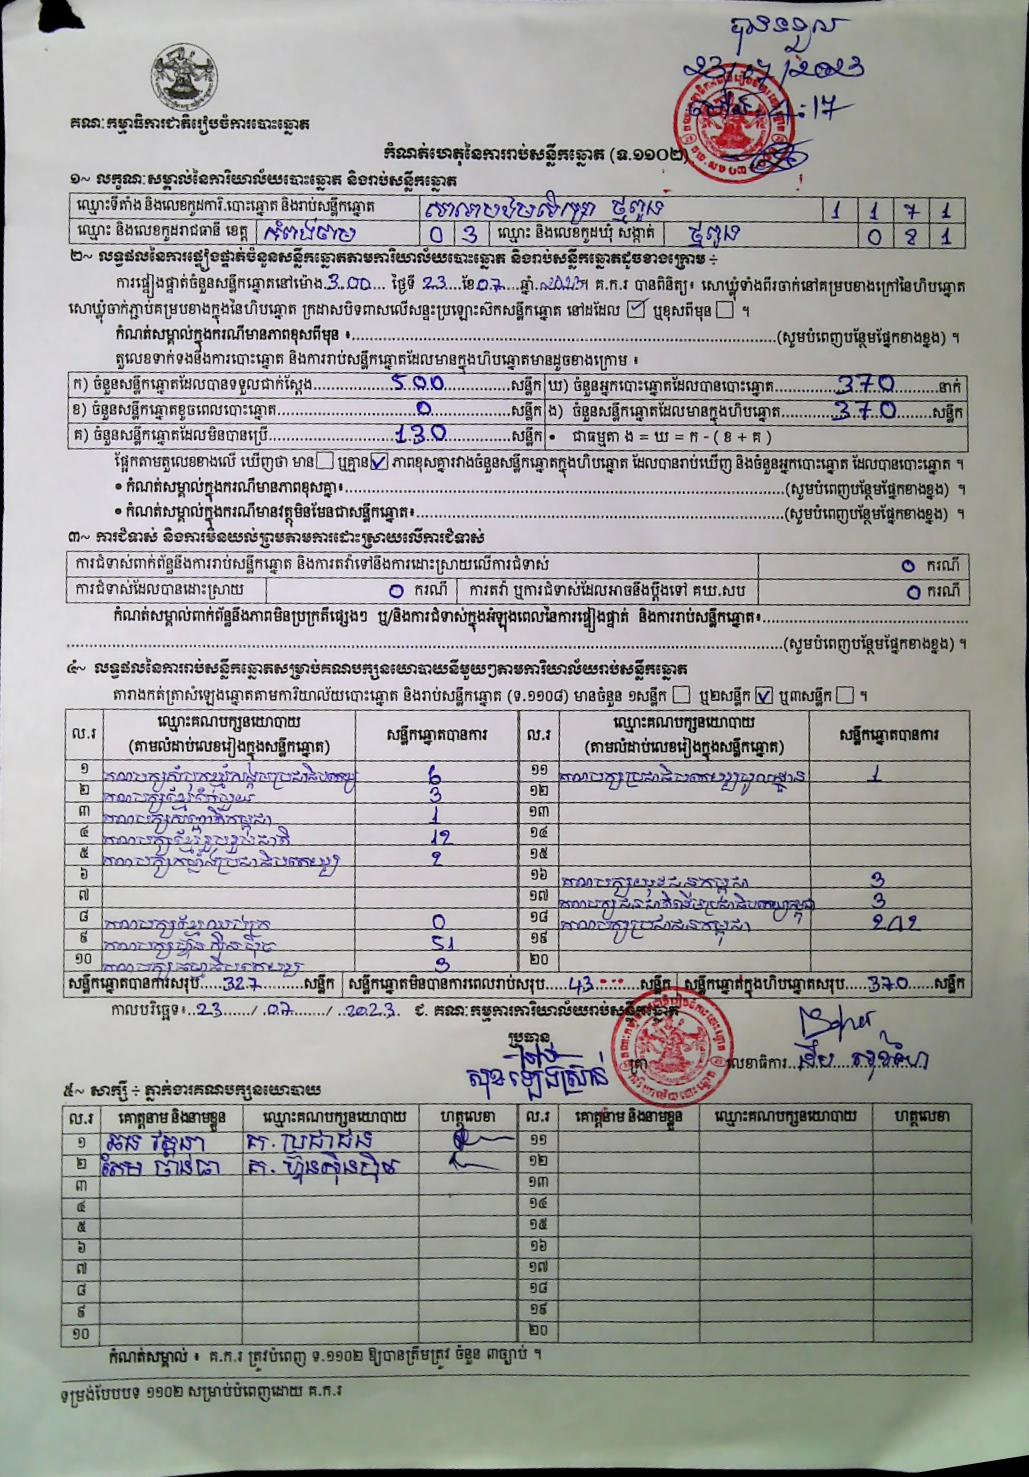 បានទទួល
23/៧/2023
គណៈកម្មាធិការជាតិរៀបចំការបោះឆ្នោត
កំណត់ហេតុនៃការរាប់សន្លឹកឆ្នោត (ទ.១១០២)
១~ លក្ខណៈសម្គាល់នៃការិយាល័យបោះឆ្នោត និងរាប់សន្លឹកឆ្នោត
ឈ្មោះទីតាំង និងលេខកូដការិ.បោះឆ្នោត និងរាប់សន្លឹកឆ្នោត 1 1 7 1
ឈ្មោះ និងលេខកូដរាជធានី ខេត្ត កំពង់ចាម 0 3 ឈ្មោះ និងលេខកូដឃុំ សង្កាត់ 0 8 1
២~ លទ្ធផលនៃការផ្ទៀងផ្ទាត់ចំនួនសន្លឹកឆ្នោតតាមការិយាល័យបោះឆ្នោត និងរាប់សន្លឹកឆ្នោតដូចខាងក្រោម ÷
ការផ្ទៀងផ្ទាត់ចំនួនសន្លឹកឆ្នោតនៅម៉ោង 3.00 ថ្ងៃទី 23 ខែ 07 ឆ្នាំ 2023។ គ.ក.រ បានពិនិត្យ៖ សោឃ្លុំទាំងពីរចាក់នៅគម្របខាងក្រៅនៃហិបឆ្នោត
សោឃ្លុំចាក់ភ្ជាប់គម្របខាងក្នុងនៃហិបឆ្នោត ក្រដាសបិទពាសលើសន្ទះប្រឡោះស៊កសន្លឹកឆ្នោត នៅដដែល ☑ ឬខុសពីមុន ☐ ។
កំណត់សម្គាល់ក្នុងករណីមានភាពខុសពីមុន ៖ (សូមបំពេញបន្ថែមផ្នែកខាងខ្នង) ។
តួលេខទាក់ទងនឹងការបោះឆ្នោត និងការរាប់សន្លឹកឆ្នោតដែលមានក្នុងហិបឆ្នោតមានដូចខាងក្រោម ៖
ក) ចំនួនសន្លឹកឆ្នោតដែលបានទទួលជាក់ស្តែង 500 សន្លឹក ឃ) ចំនួនអ្នកបោះឆ្នោតដែលបានបោះឆ្នោត 370 នាក់
ខ) ចំនួនសន្លឹកឆ្នោតខូចពេលបោះឆ្នោត 0 សន្លឹក ង) ចំនួនសន្លឹកឆ្នោតដែលមានក្នុងហិបឆ្នោត 370 សន្លឹក
គ) ចំនួនសន្លឹកឆ្នោតដែលមិនបានប្រើ 130 សន្លឹក • ជាធម្មតា ង = ឃ = ក - ( ខ + គ )
ផ្អែកតាមតួលេខខាងលើ ឃើញថា មាន ☐ ឬគ្មាន ☑ ភាពខុសគ្នារវាងចំនួនសន្លឹកឆ្នោតក្នុងហិបឆ្នោត ដែលបានរាប់ឃើញ និងចំនួនអ្នកបោះឆ្នោត ដែលបានបោះឆ្នោត ។
• កំណត់សម្គាល់ក្នុងករណីមានភាពខុសគ្នា៖ (សូមបំពេញបន្ថែមផ្នែកខាងខ្នង) ។
• កំណត់សម្គាល់ក្នុងករណីមានវត្ថុមិនមែនជាសន្លឹកឆ្នោត៖ (សូមបំពេញបន្ថែមផ្នែកខាងខ្នង) ។
៣~ ការជំទាស់ និងការមិនយល់ព្រមតាមការដោះស្រាយលើការជំទាស់
ការជំទាស់ពាក់ព័ន្ធនឹងការរាប់សន្លឹកឆ្នោត និងការតវ៉ាទៅនឹងការដោះស្រាយលើការជំទាស់ 0 ករណី
ការជំទាស់ដែលបានដោះស្រាយ 0 ករណី ការតវ៉ា ឬការជំទាស់ដែលអាចនឹងប្តឹងទៅ គឃ.សប 0 ករណី
កំណត់សម្គាល់ពាក់ព័ន្ធនឹងភាពមិនប្រក្រតីផ្សេងៗ ឬ/និងការជំទាស់ក្នុងអំឡុងពេលនៃការផ្ទៀងផ្ទាត់ និងការរាប់សន្លឹកឆ្នោត៖
(សូមបំពេញបន្ថែមផ្នែកខាងខ្នង) ។
៤~ លទ្ធផលនៃការរាប់សន្លឹកឆ្នោតសម្រាប់គណបក្សនយោបាយនីមួយៗតាមការិយាល័យរាប់សន្លឹកឆ្នោត
តារាងកត់ត្រាសំឡេងឆ្នោតតាមការិយាល័យបោះឆ្នោត និងរាប់សន្លឹកឆ្នោត (ទ.១១០៨) មានចំនួន ១សន្លឹក ☐ ឬ២សន្លឹក ☑ ឬ៣សន្លឹក ☐ ។
ល.រ ឈ្មោះគណបក្សនយោបាយ (តាមលំដាប់លេខរៀងក្នុងសន្លឹកឆ្នោត) សន្លឹកឆ្នោតបានការ ល.រ ឈ្មោះគណបក្សនយោបាយ (តាមលំដាប់លេខរៀងក្នុងសន្លឹកឆ្នោត) សន្លឹកឆ្នោតបានការ
១ 6 ១១ គណបក្សប្រជាធិបតេយ្យមូលដ្ឋាន 1
២ 3 ១២
៣ 1 ១៣
៤ គណបក្សខ្មែររួបរួមជាតិ 12 ១៤
៥ គណបក្សកម្លាំងប្រជាធិបតេយ្យ 2 ១៥
៦ ១៦ គណបក្សយុវជនកម្ពុជា 3
៧ ១៧ 3
៨ គណបក្សខ្មែរឈប់ក្រ 0 ១៨ គណបក្សប្រជាជនកម្ពុជា 242
៩ គណបក្សហ៊្វុនស៊ិនប៉ិច 51 ១៩
១០ គណបក្សធម្មាធិបតេយ្យ 3 ២០
សន្លឹកឆ្នោតបានការសរុប 327 សន្លឹក សន្លឹកឆ្នោតមិនបានការពេលរាប់សរុប 43 សន្លឹក សន្លឹកឆ្នោតក្នុងហិបឆ្នោតសរុប 370 សន្លឹក
កាលបរិច្ឆេទ៖ 23 / 07 / 2023 ជ. គណៈកម្មការការិយាល័យរាប់សន្លឹកឆ្នោត
ប្រធាន
ត្រា លេខាធិការ
៥~ សាក្សី ÷ ភ្នាក់ងារគណបក្សនយោបាយ
ល.រ គោត្តនាម និងនាមខ្លួន ឈ្មោះគណបក្សនយោបាយ ហត្ថលេខា ល.រ គោត្តនាម និងនាមខ្លួន ឈ្មោះគណបក្សនយោបាយ ហត្ថលេខា
១ គ. ប្រជាជន ១១
២ គ. ហ៊្វុនស៊ិនប៉ិច ១២
៣ ១៣
៤ ១៤
៥ ១៥
៦ ១៦
៧ ១៧
៨ ១៨
៩ ១៩
១០ ២០
កំណត់សម្គាល់ ៖ គ.ក.រ ត្រូវបំពេញ ទ.១១០២ ឱ្យបានត្រឹមត្រូវ ចំនួន ៣ច្បាប់ ។
ទម្រង់បែបបទ ១១០២ សម្រាប់បំពេញដោយ គ.ក.រ